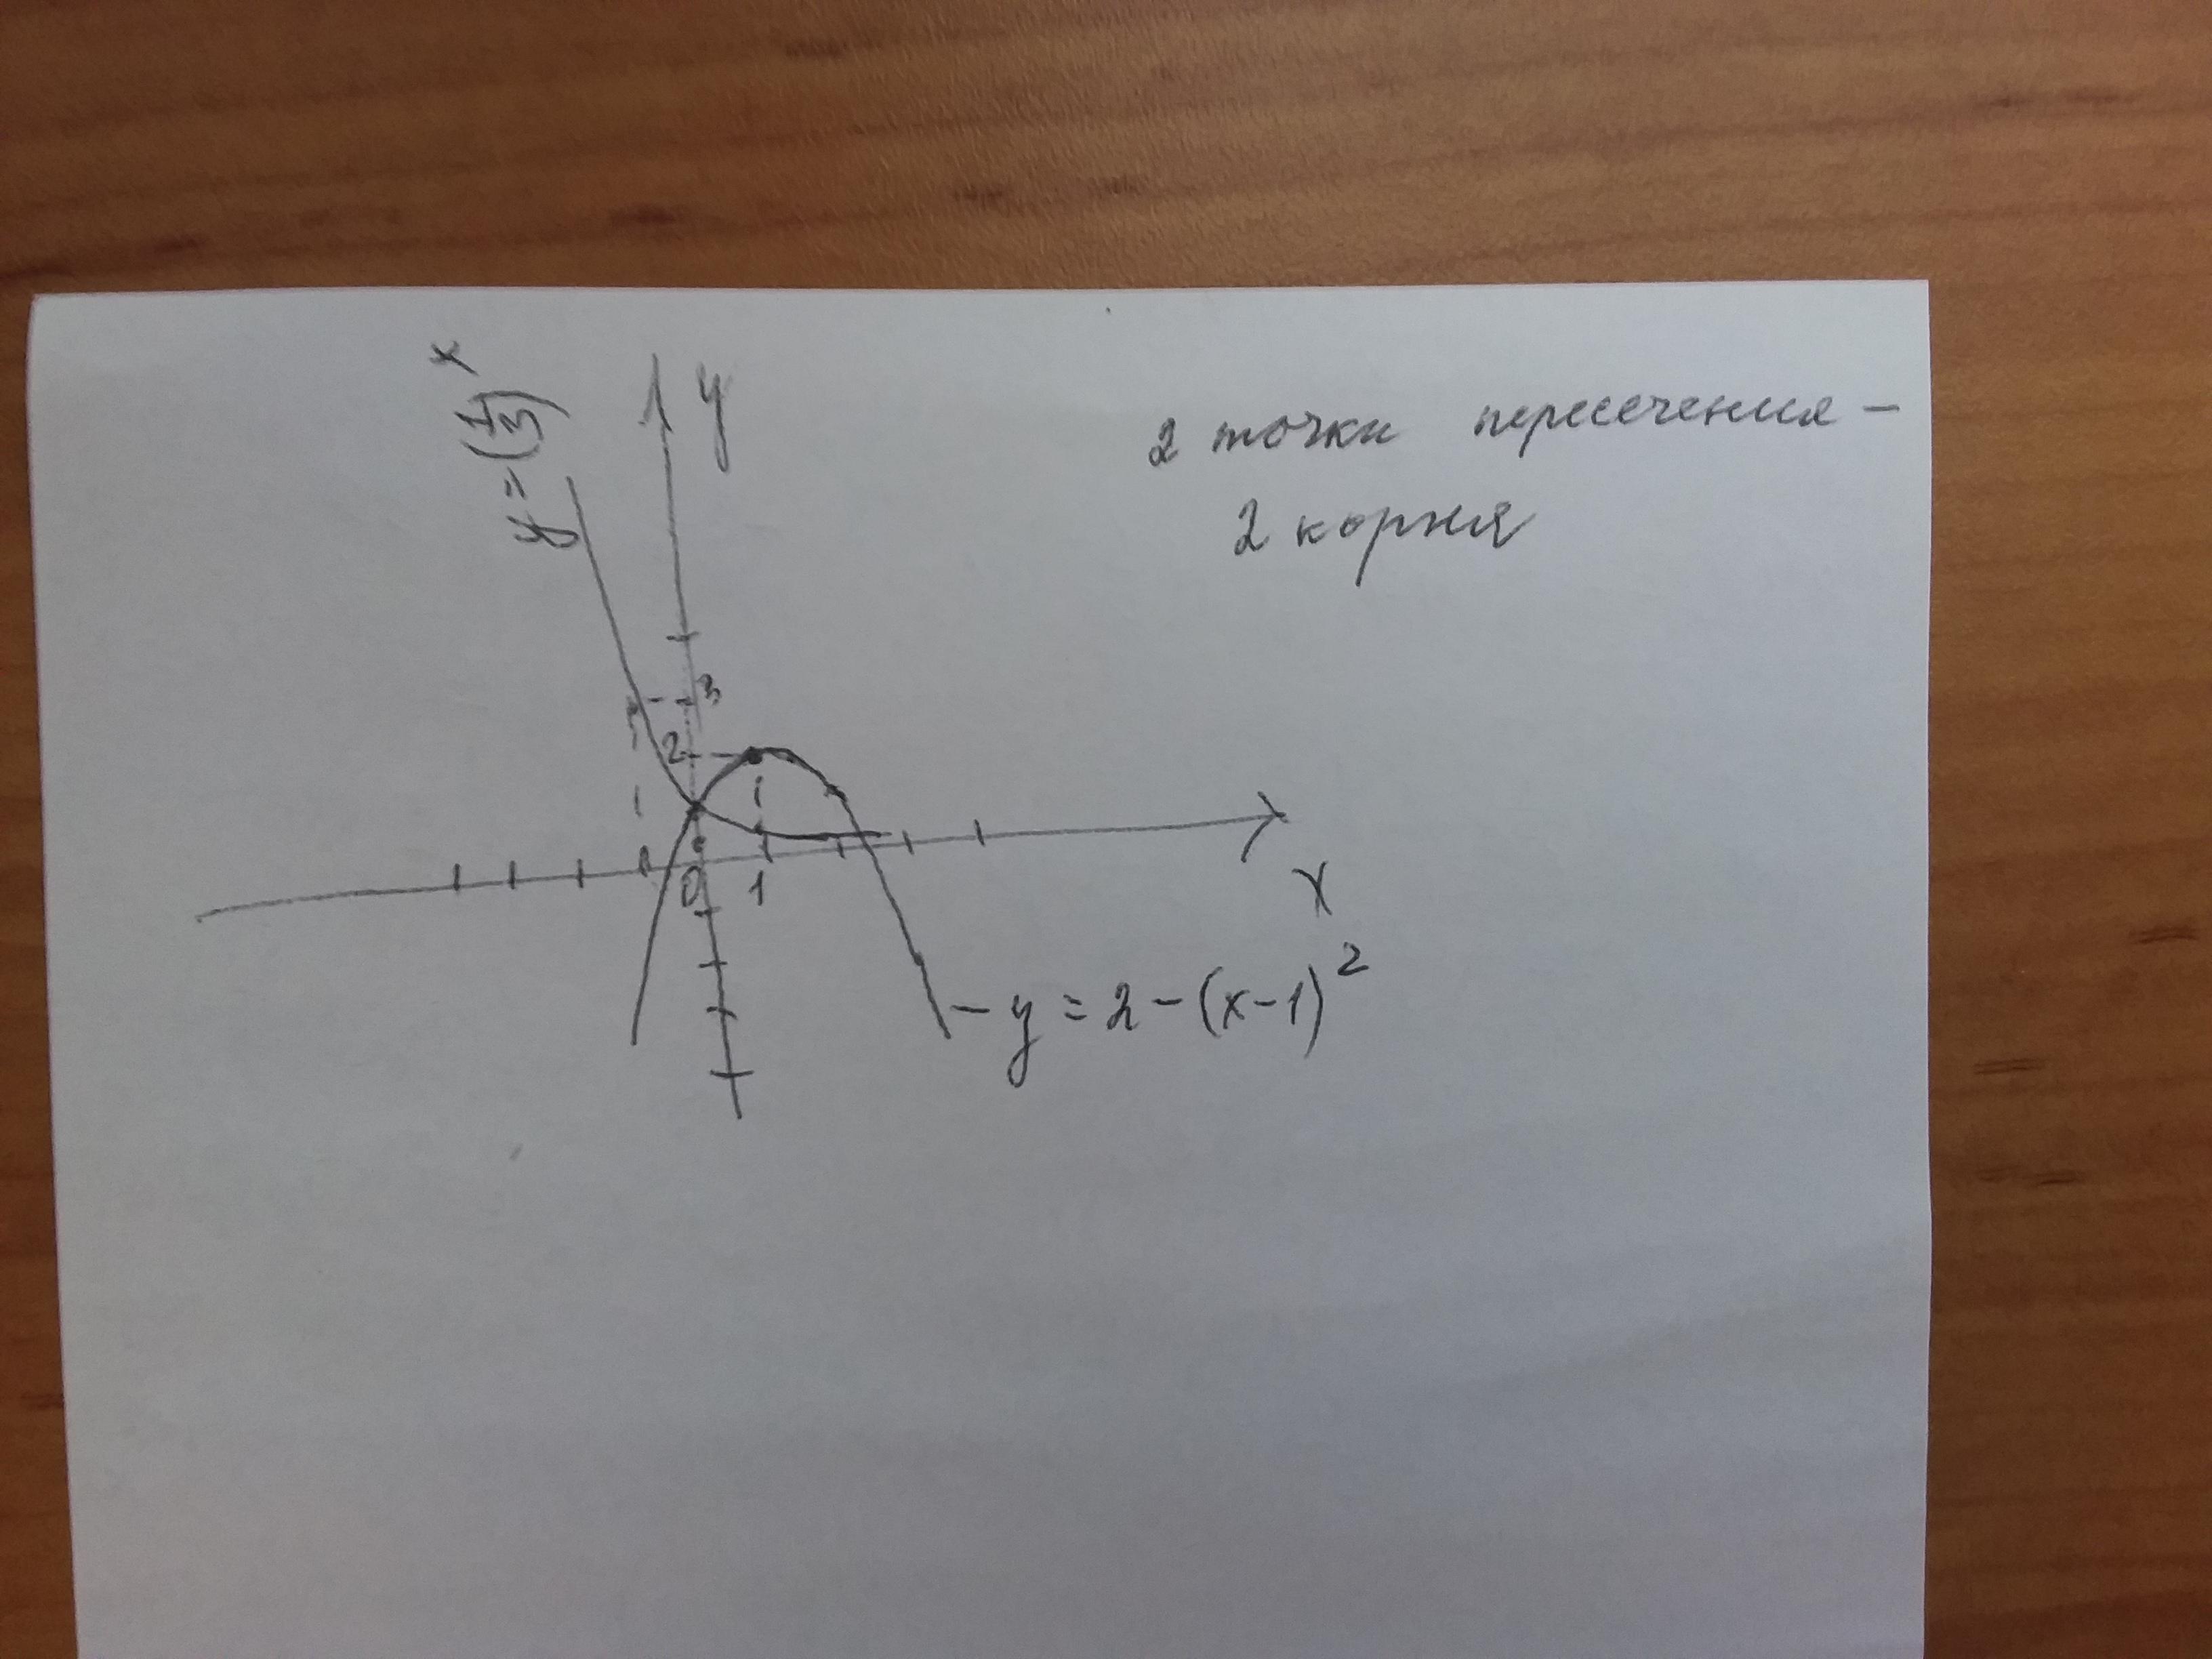 y = (1/3)^x
y
2 точки пересечения –
2 корня
3
2
0
1
x
– y = 2 – (x–1)^2